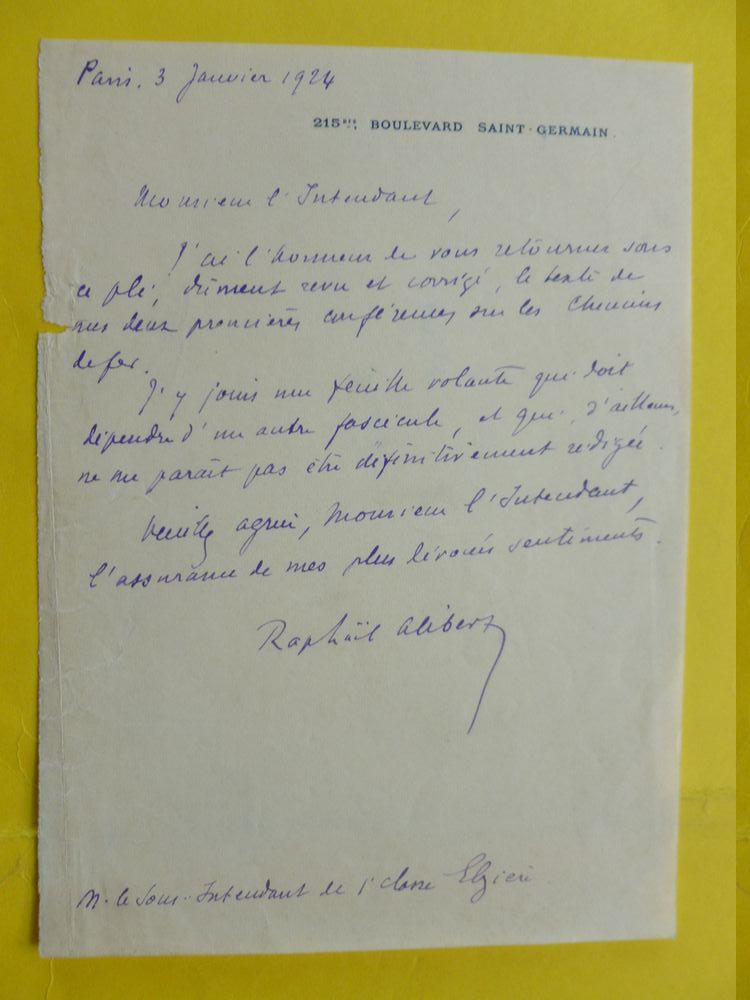 Paris. 3 Janvier 1924
215bis, BOULEVARD SAINT-GERMAIN.
Monsieur l'Intendant,
J'ai l'honneur de vous retourner sous
ce pli, dûment revu et corrigé, le texte de
mes deux premières conférences sur les Chemins
de fer.
J'y joins une feuille volante qui doit
dépendre d'un autre fascicule, et qui, d'ailleurs,
ne me paraît pas être définitivement rédigée.
Veuillez agréer, Monsieur l'Intendant,
l'assurance de mes plus dévoués sentiments.
Raphaël Alibert
M. le Sous-Intendant de 1e classe